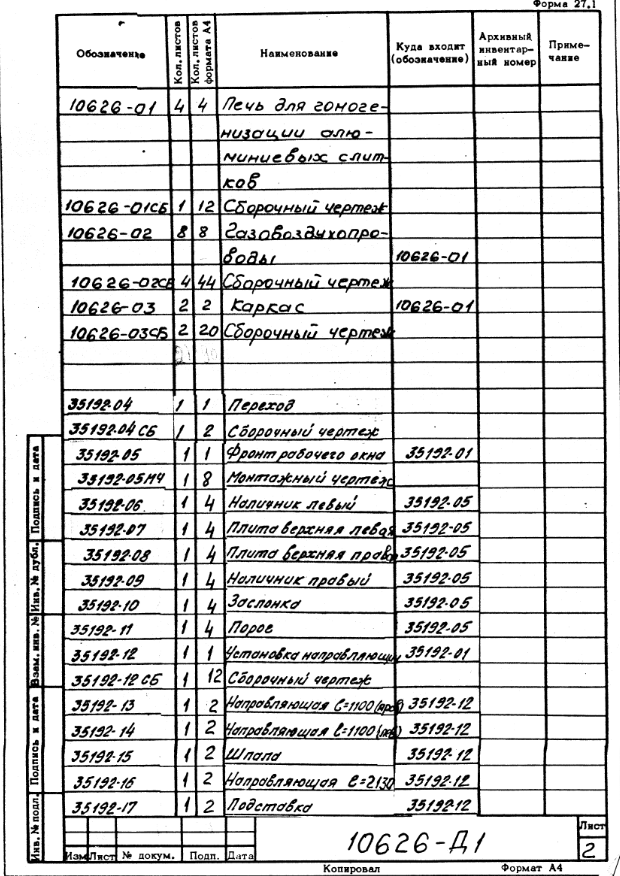 Форма 27.1
Обозначение Кол. листов Кол. листов формата А4 Наименование Куда входит (обозначение) Архивный инвентарный номер Примечание
10626-01 4 4 Печь для гомоге-
низации алю-
миниевых слит-
ков
10626-01СБ 1 12 Сборочный чертеж
10626-02 8 8 Газовоздухопро-
воды 10626-01
10626-02СБ 4 44 Сборочный чертеж
10626-03 2 2 Каркас 10626-01
10626-03СБ 2 20 Сборочный чертеж
35192-04 1 1 Переход
35192-04 СБ 1 2 Сборочный чертеж
35192-05 1 1 Фронт рабочего окна 35192-01
35192-05МЧ 1 8 Монтажный чертеж
35192-06 1 4 Наличник левый 35192-05
35192-07 1 4 Плита верхняя левая 35192-05
35192-08 1 4 Плита верхняя правая 35192-05
35192-09 1 4 Наличник правый 35192-05
35192-10 1 4 Заслонка 35192-05
35192-11 1 4 Порог 35192-05
35192-12 1 1 Установка направляющих 35192-01
35192-12 СБ 1 12 Сборочный чертеж
35192-13 1 2 Направляющая ℓ=1100 (прав) 35192-12
35192-14 1 2 Направляющая ℓ=1100 (лев) 35192-12
35192-15 1 2 Шпала 35192-12
35192-16 1 2 Направляющая ℓ=2130 35192-12
35192-17 1 2 Подставка 35192-12
Подпись и дата
Инв. № дубл.
Взам. инв. №
Подпись и дата
Инв. № подл.
Изм Лист № докум. Подп. Дата
10626-Д1
Лист
2
Копировал Формат А4